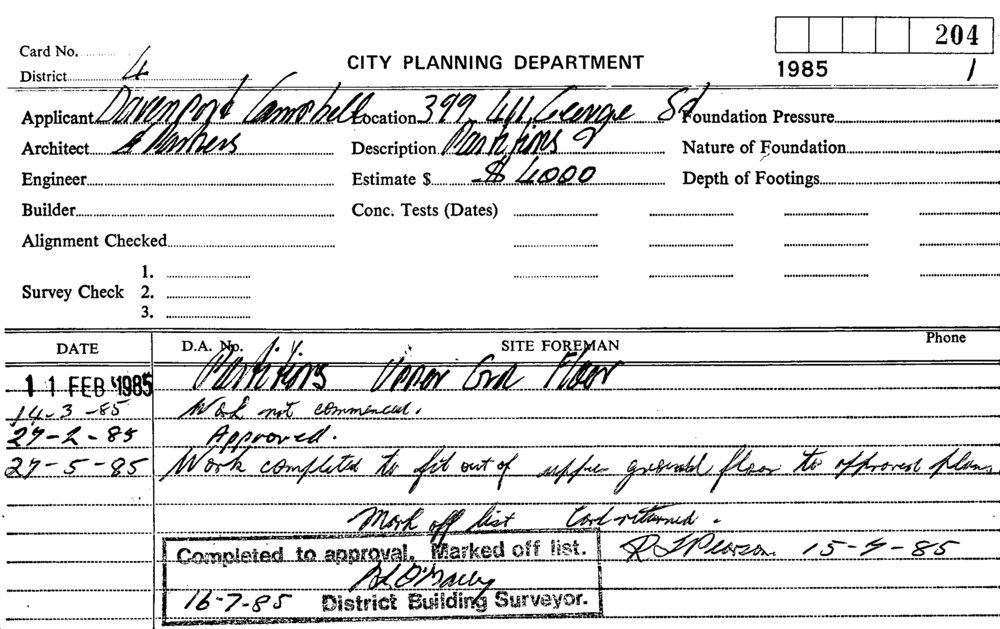 204
Card No.
District 4
CITY PLANNING DEPARTMENT
1985 1
Applicant Davenport Campbell Location 399 411 George St Foundation Pressure
Architect & Partners Description Partitions Nature of Foundation
Engineer Estimate $ $ 4000 Depth of Footings
Builder Conc. Tests (Dates)
Alignment Checked
1.
Survey Check 2.
3.
DATE D.A. No. SITE FOREMAN Phone
11 FEB 1985 Partitions Upper Grd Floor
14-3-85 Work not commenced.
27-2-85 Approved.
27-5-85 Work completed to fit out of upper ground floor to approved plans
Mark off list Card returned.
Completed to approval. Marked off list. 15-7-85
16-7-85 District Building Surveyor.